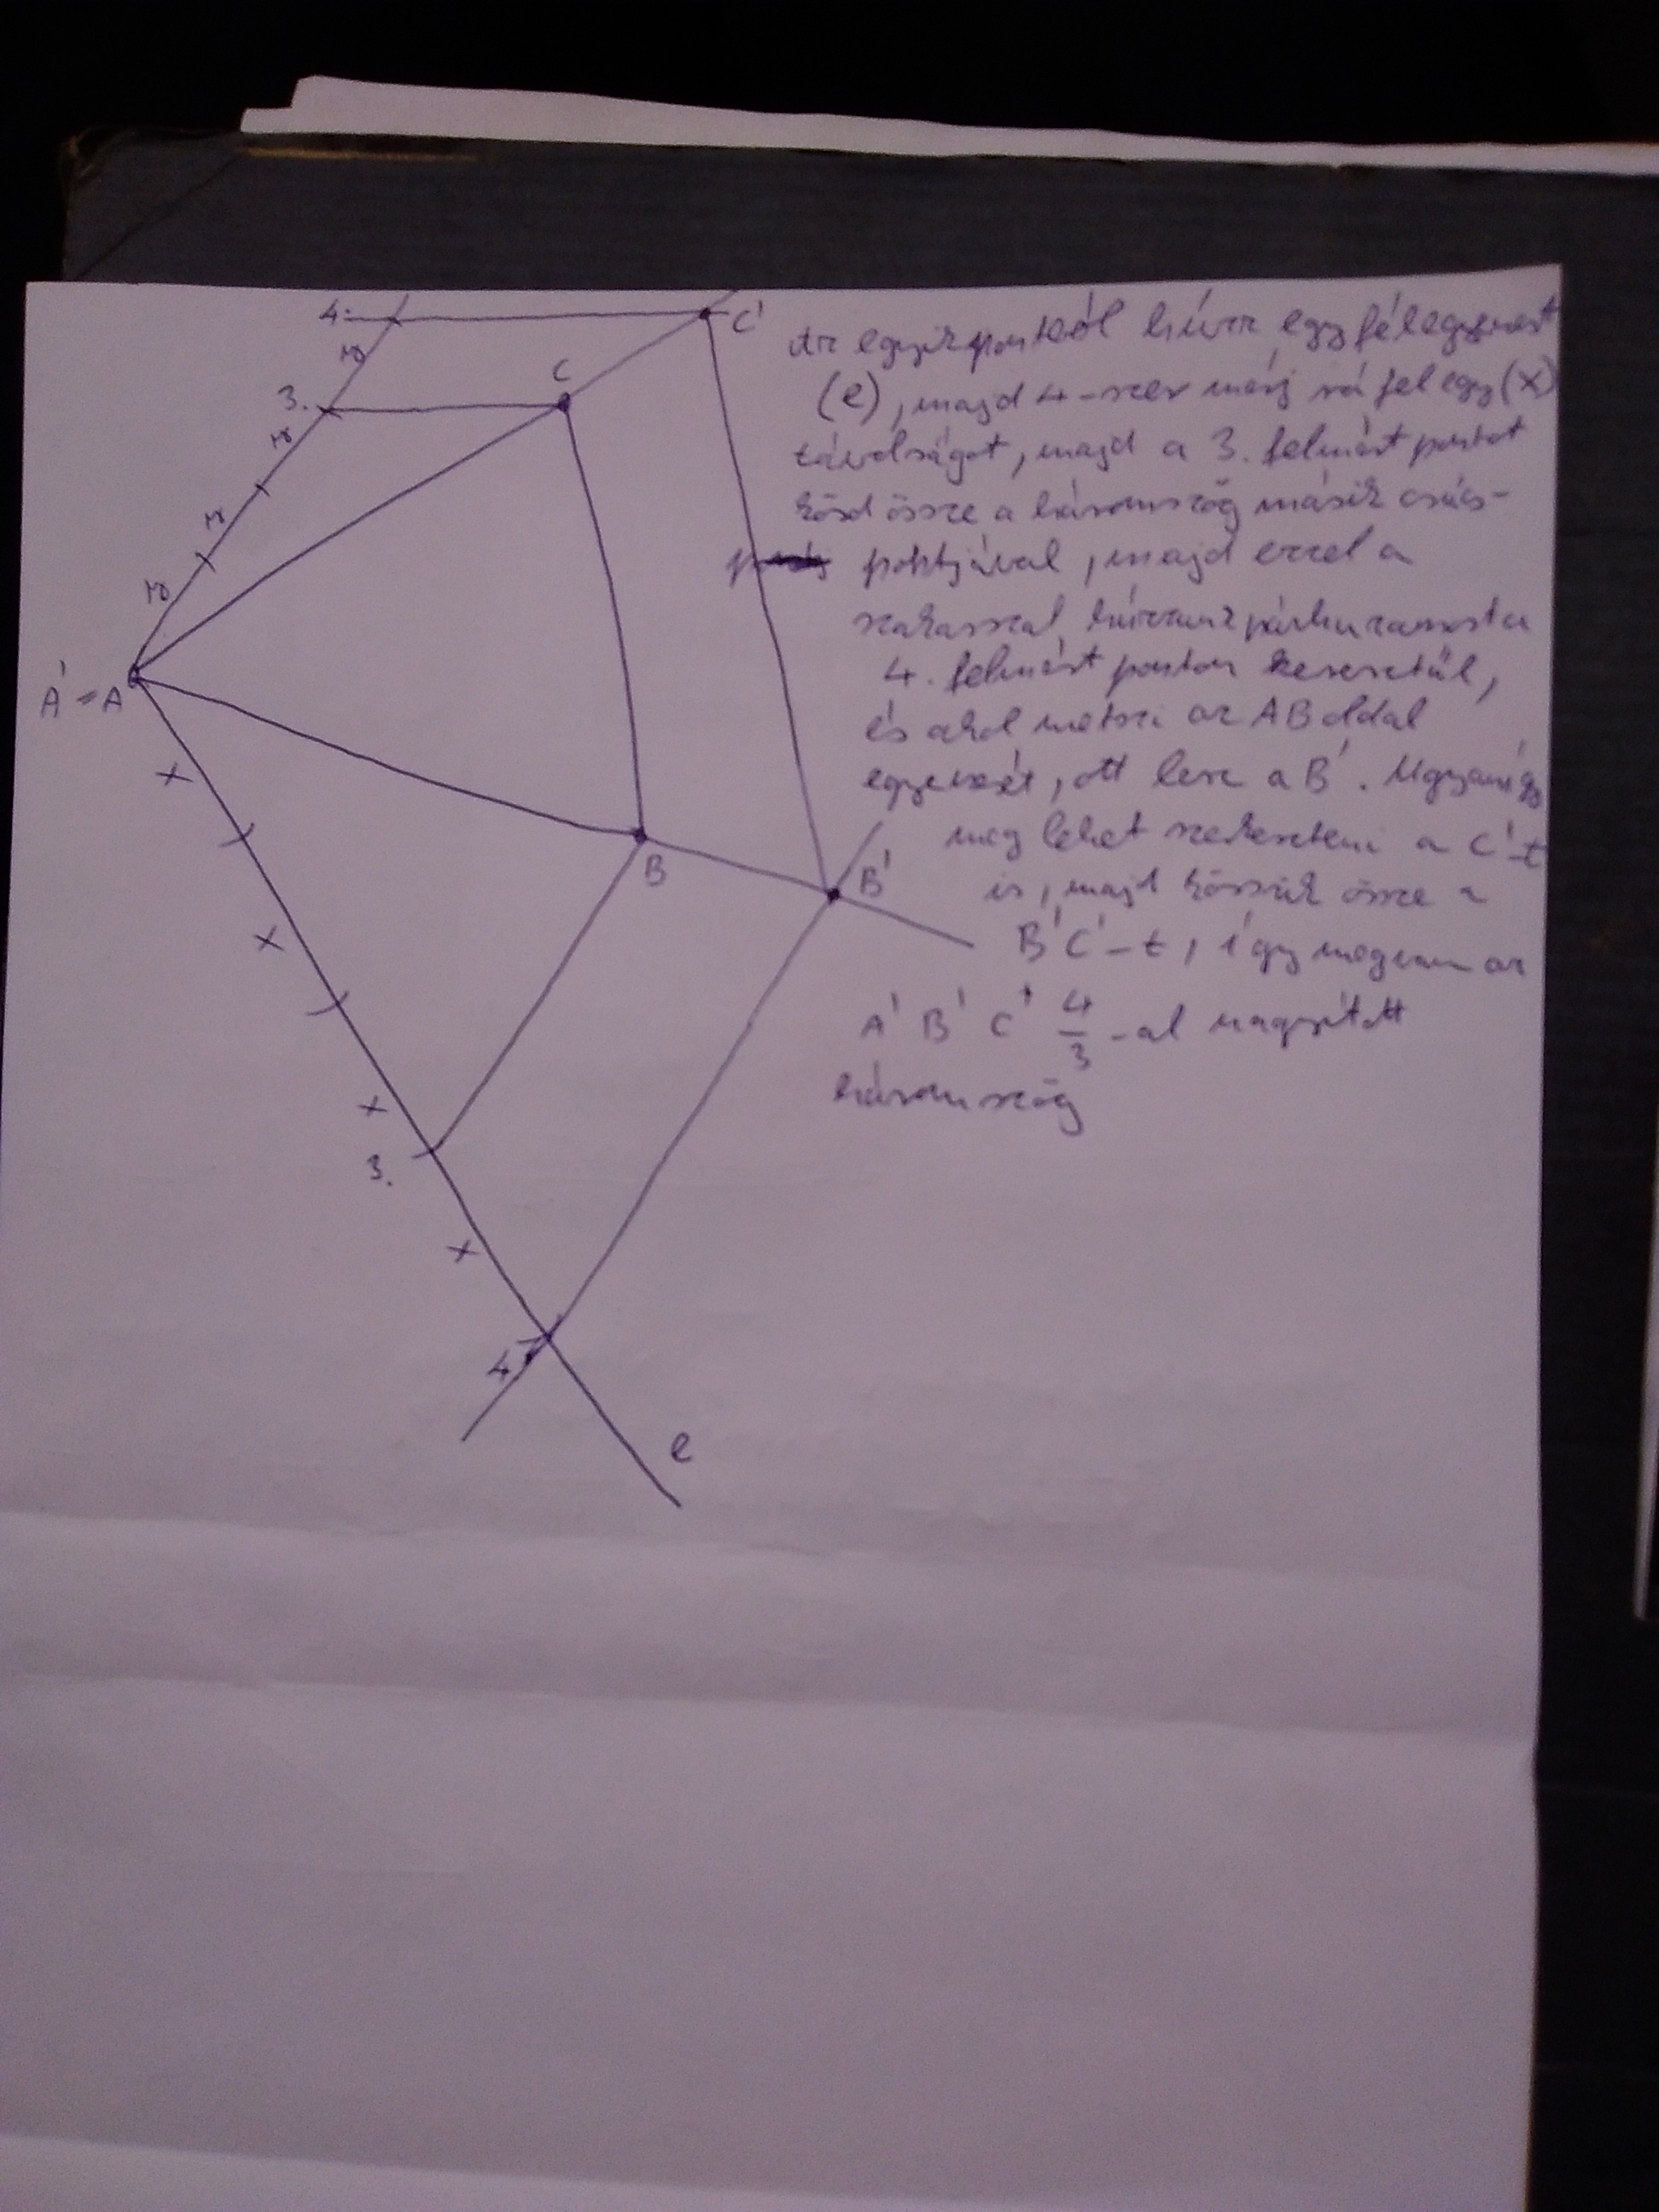 4.
C'
C
3.
A' = A
B
B'
x
x
x
3.
x
4
e
Az egyik pontból húzz egy félegyenest
(e), majd 4-szer mérj rá fel egy (x)
távolságot, majd a 3. felmért pontot
kösd össze a háromszög másik csúcs-
pontjával, majd ezzel a
szakasszal húzzunk párhuzamost a
4. felmért ponton keresztül,
és ahol metszi az AB oldal
egyenesét, ott lesz a B'. Ugyanígy
meg lehet szerkeszteni a C'-t
is, majd kössük össze a
B'C'-t, így megvan az
A' B' C' 4/3 -al nagyított
háromszög